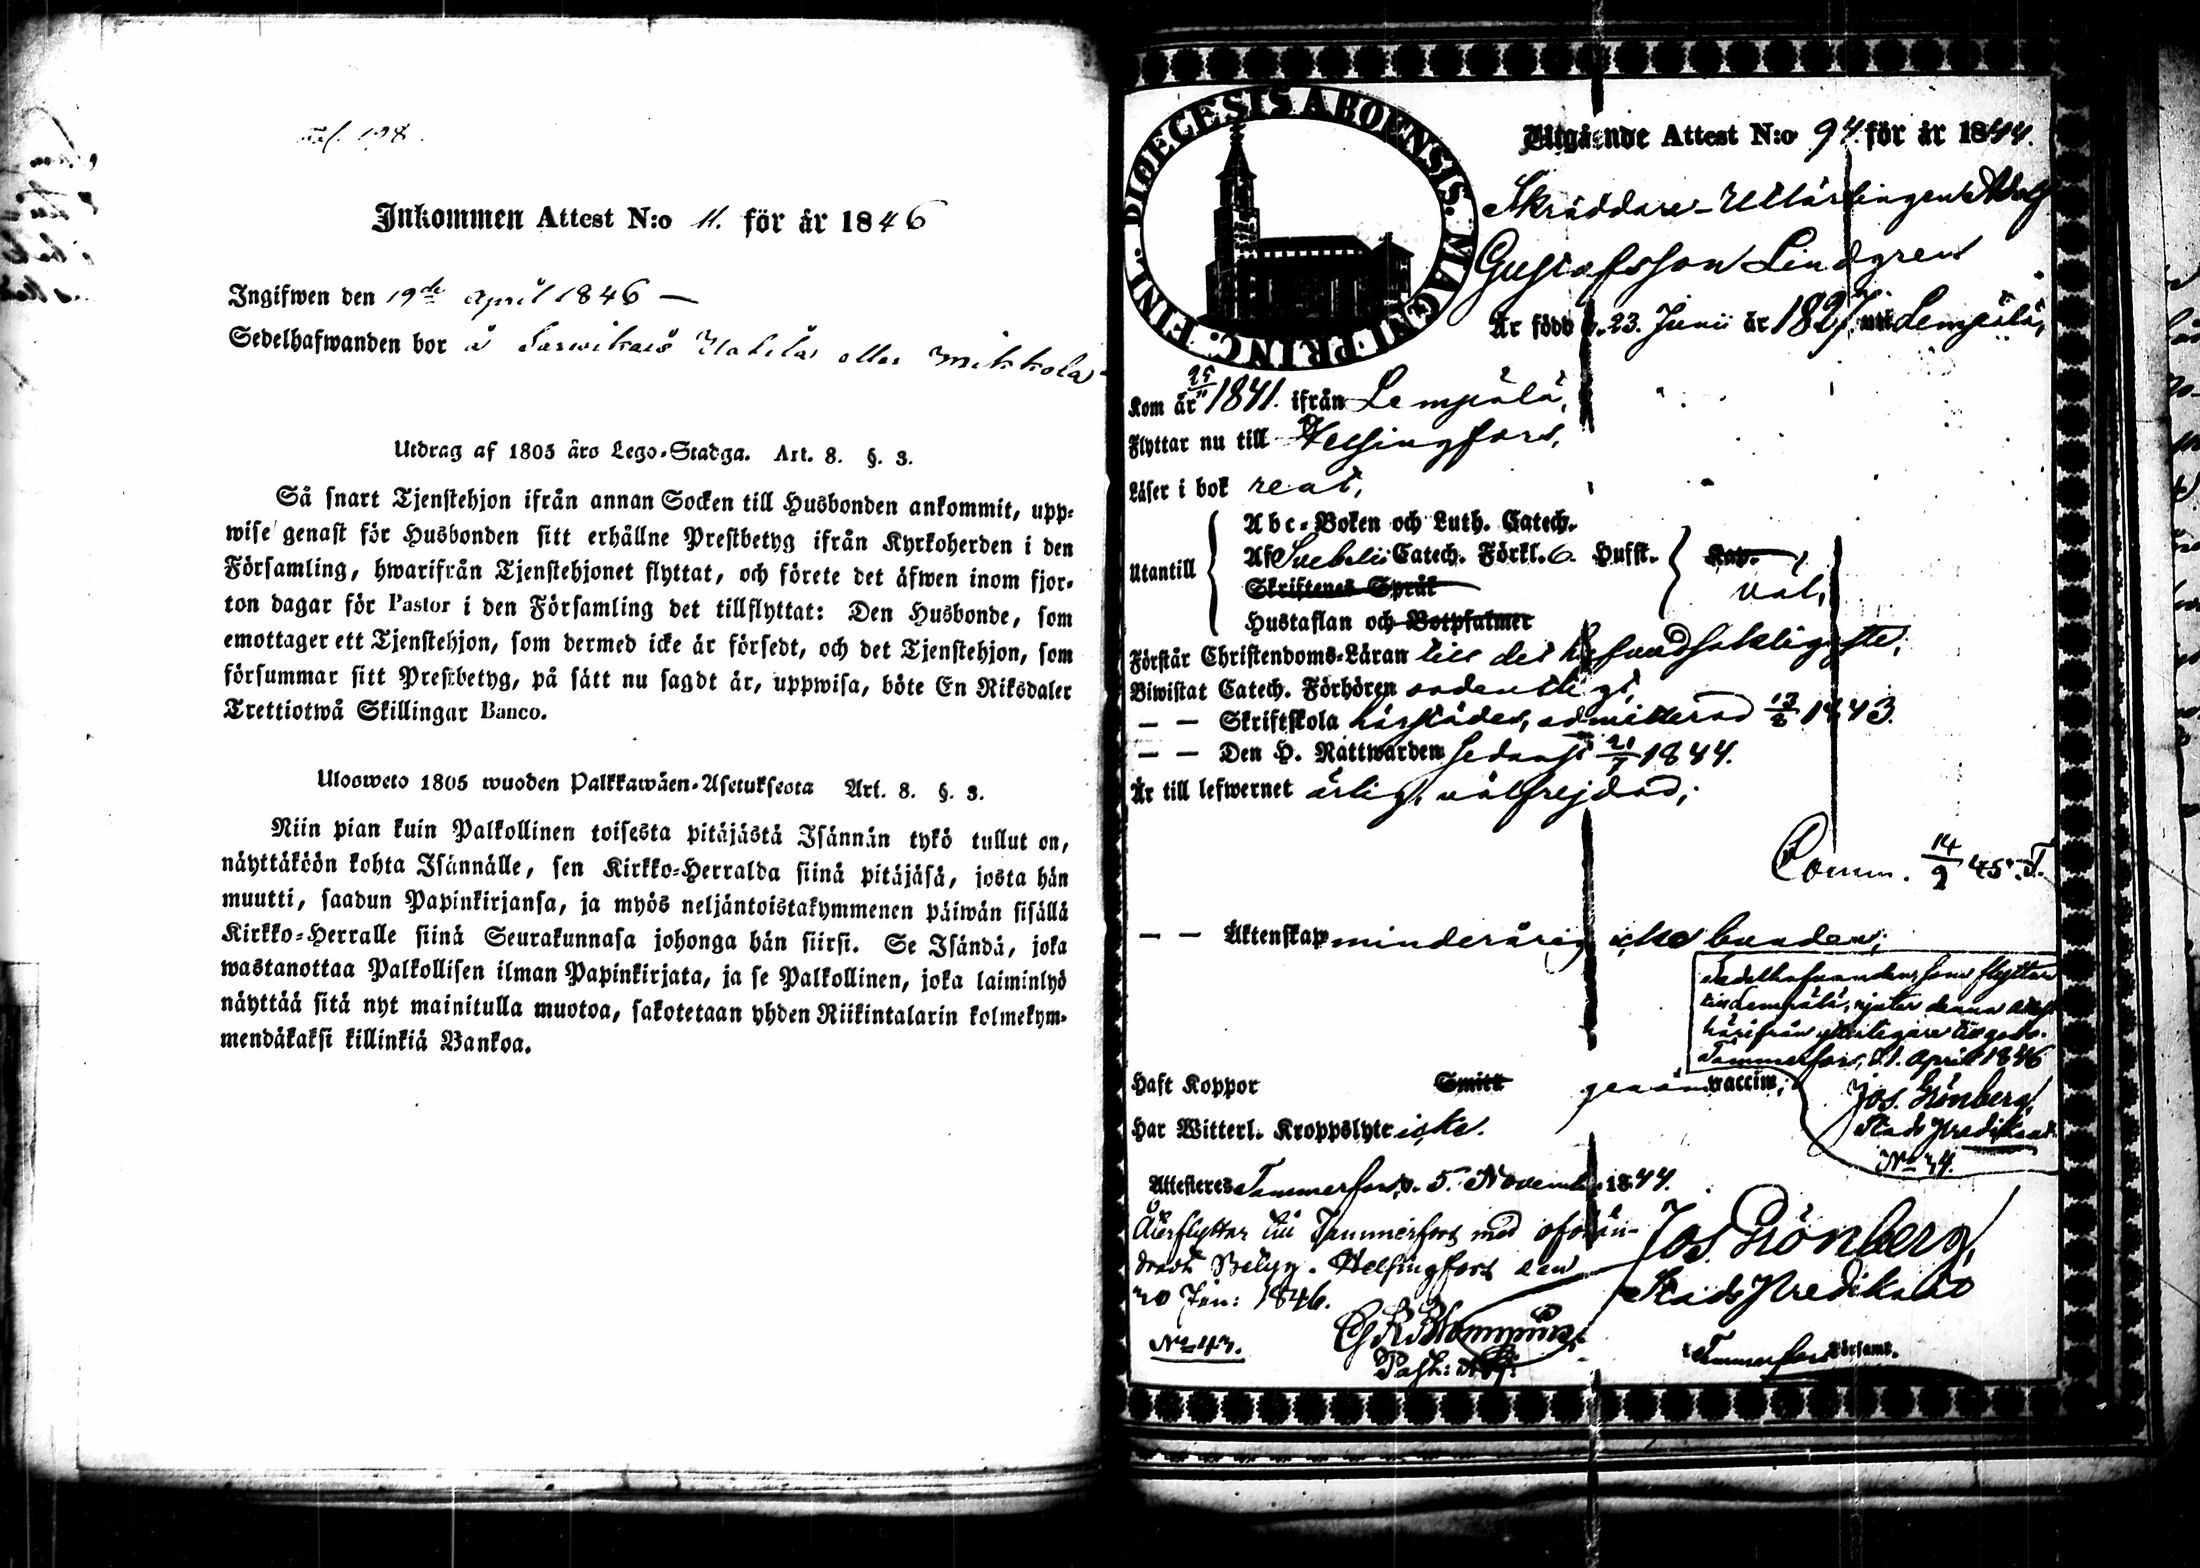 Inkommen Attest N:o 11. för år 1846
Ingifwen den 19de April 1846 —
Sedelhafwanden bor å Sarwikais Uotila eller Mikkola
Utdrag af 1805 års Lego-Stadga. Art. 8. §. 3.
Så snart Tjenstehjon ifrån annan Socken till Husbonden ankommit, upp-
wise genast för Husbonden sitt erhållne Prestbetyg ifrån Kyrkoherden i den
Församling, hwarifrån Tjenstehjonet flyttat, och förete det äfwen inom fjor-
ton dagar för Pastor i den Församling det tillflyttat: Den Husbonde, som
emottager ett Tjenstehjon, som dermed icke är försedt, och det Tjenstehjon, som
försummar sitt Prestbetyg, på sätt nu sagdt är, uppwisa, böte En Riksdaler
Trettiotwå Skillingar Banco.
Ulosweto 1805 wuoden Palkkawäen-Asetuksesta Art. 8. §. 3.
Niin pian kuin Palkollinen toisesta pitäjästä Isännän tykö tullut on,
näyttäköön kohta Isännälle, sen Kirkko-Herralda siinä pitäjäsä, josta hän
muutti, saadun Papinkirjansa, ja myös neljäntoistakymmenen päiwän sisällä
Kirkko-Herralle siinä Seurakunnasa johonga hän siirsi. Se Isändä, joka
wastanottaa Palkollisen ilman Papinkirjata, ja se Palkollinen, joka laiminlyö
näyttää sitä nyt mainitulla muotoa, sakotetaan yhden Riikintalarin kolmekym-
mendäkaksi killinkiä Bankoa.
DIOECESIS ABOENSIS. MAGNI PRINC: FINL.
Utgående Attest N:o 94. för år 1844.
Skräddare-Utlärlingen Adolf
Gustafsson Lindgren
Är född d. 23. Junii år 1827, uti Lempälä,
Kom år 1841. ifrån Lempälä,
Flyttar nu till Helsingfors,
Läser i bok rent,
Utantill
Abc-Boken och Luth. Catech.
Af Svebelii Catech. Förkl. o. Husst. Kap.
Skriftenes Språk väl,
Hustaflan och Botpsalmer
Förstår Christendoms-Läran till det hufvudsakligaste,
Biwistat Catech. Förhören ordentligt,
— — Skriftskola härstädes, admitterad 13/8 1843.
— — Den H. Nattwarden sedanst 21/7 1844.
Är till lefwernet ärlig, välfrejdad;
Comm. 14/9 45. T.
— — Äktenskap minderårig icke bunden;
Sedelhafvanden, som flyttar
till Lempälä, njuter denna attest
härifrån ytterligare till godo.
Tammerfors, d. 1. April 1846
Jos. Grönberg,
Stads Predikant
No 34.
Haft Koppor Smitt genom vaccin;
Har Witterl. Kroppslyte icke.
Attesteres Tammerfors, d. 5. November 1844.
Jos. Grönberg,
Stads Predikant
Återflyttar till Tammerfors med oförän-
dradt Betyg. Helsingfors den
20 Jan: 1846.
No 43.
Past: Adj:
Tammerfors Församl.